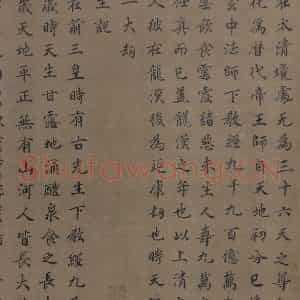 在太清境三十六天之
化為代帝王師天地初分已
玄中法師下教經九千九百億萬
生人壽九萬
極真而已蓋龍漢元年也以上清
人號在龍漢後為延康劫也時天
一大劫
生說
在前三皇時有古先生下教經九
歲時天生甘露地涌醴泉食之長
歲天地平正無有山河人皆長大
Shufawang.CN